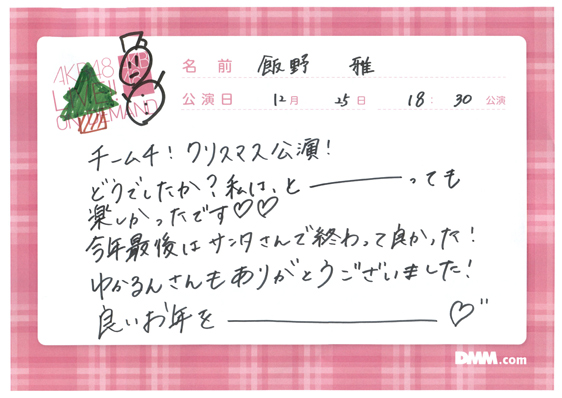 AKB48
LIVE!!
ON DEMAND
名前 飯野 雅
公演日 12月 25日 18:30 公演
チーム4！クリスマス公演！
どうでしたか？私は、と――――っても
楽しかったです♡♡
今年最後はサンタさんで終わって良かった！
ゆかるんさんもありがとうございました！
良いお年を――――――――♡"
DMM.com